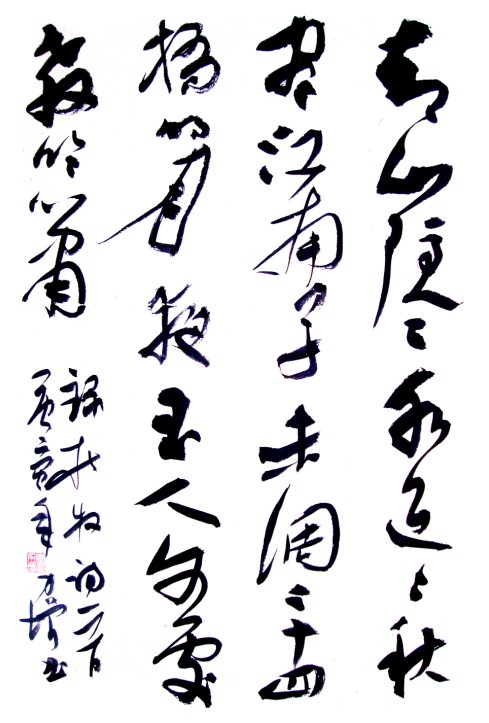 青山隱〻水迢〻秋
盡江南草未凋二十四
橋明月夜玉人何處
教吹簫
錄杜牧詩一首
庚寅年書